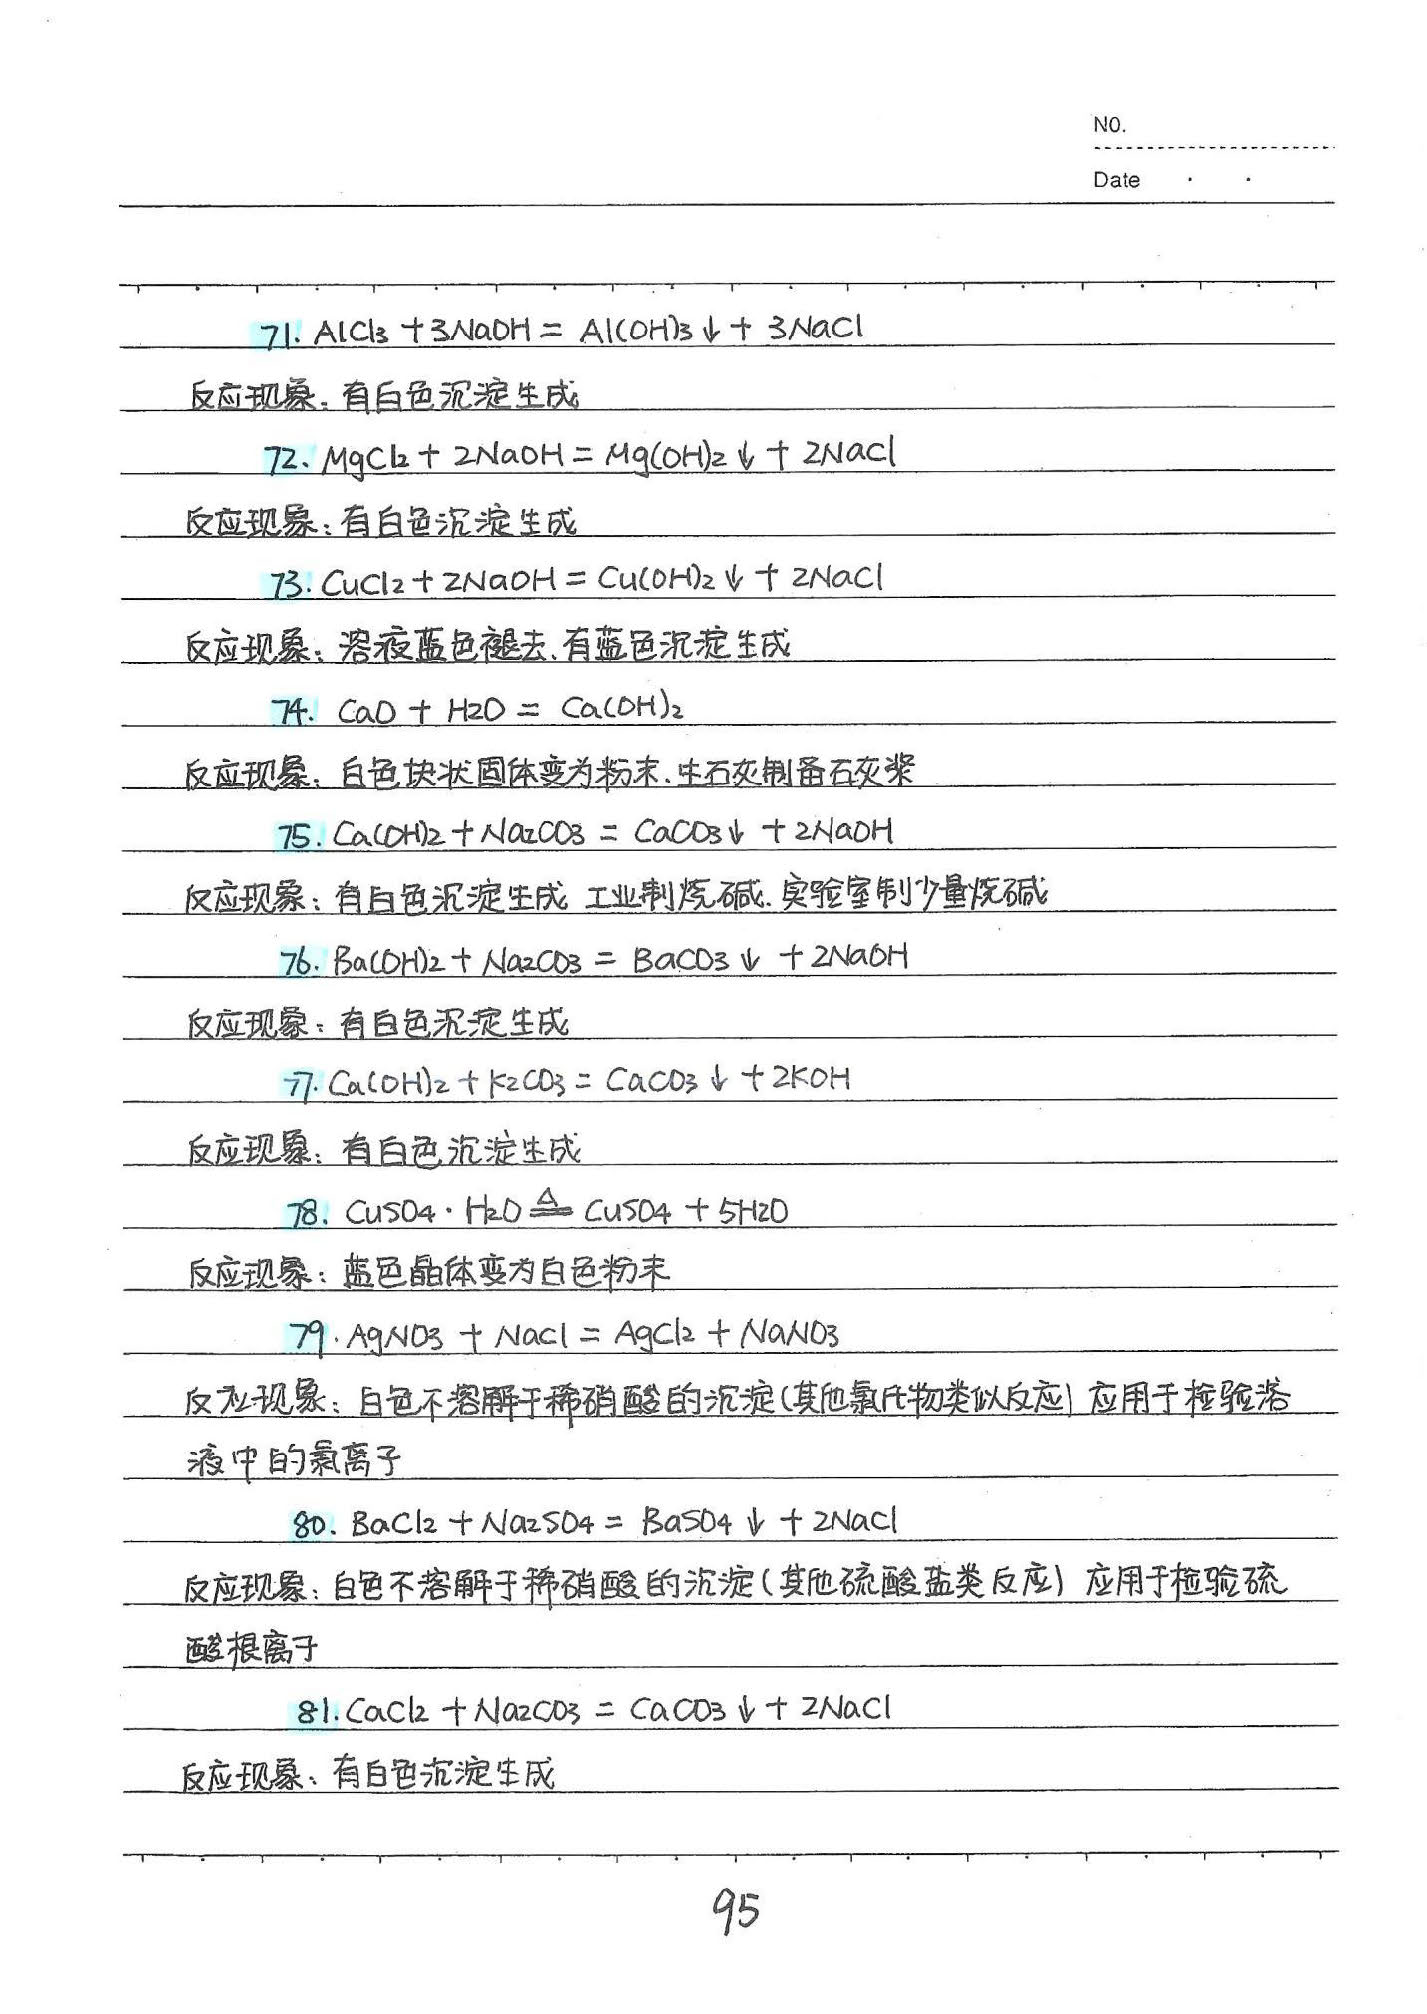 NO.
Date
71. AlCl3 + 3NaOH = Al(OH)3↓ + 3NaCl
反应现象：有白色沉淀生成
72. MgCl2 + 2NaOH = Mg(OH)2↓ + 2NaCl
反应现象：有白色沉淀生成
73. CuCl2 + 2NaOH = Cu(OH)2↓ + 2NaCl
反应现象：溶液蓝色褪去、有蓝色沉淀生成
74. CaO + H2O = Ca(OH)2
反应现象：白色块状固体变为粉末、生石灰制备石灰浆
75. Ca(OH)2 + Na2CO3 = CaCO3↓ + 2NaOH
反应现象：有白色沉淀生成 工业制烧碱、实验室制少量烧碱
76. Ba(OH)2 + Na2CO3 = BaCO3↓ + 2NaOH
反应现象：有白色沉淀生成
77. Ca(OH)2 + K2CO3 = CaCO3↓ + 2KOH
反应现象：有白色沉淀生成
78. CuSO4·H2O ≜ CuSO4 + 5H2O
反应现象：蓝色晶体变为白色粉末
79. AgNO3 + NaCl = AgCl2 + NaNO3
反应现象：白色不溶解于稀硝酸的沉淀(其他氯化物类似反应) 应用于检验溶
液中的氯离子
80. BaCl2 + Na2SO4 = BaSO4↓ + 2NaCl
反应现象：白色不溶解于稀硝酸的沉淀(其他硫酸盐类反应) 应用于检验硫
酸根离子
81. CaCl2 + Na2CO3 = CaCO3↓ + 2NaCl
反应现象：有白色沉淀生成
95